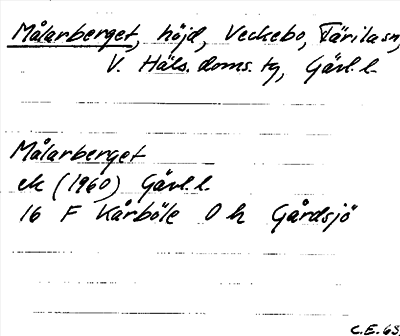 Målarberget, höjd, Veckebo, Färila sn,
V. Häls. doms. tg, Gävl. l.
Målarberget
ek (1960) Gävl. l.
16 F Kårböle 0 h Gårdsjö
C.E. 63.